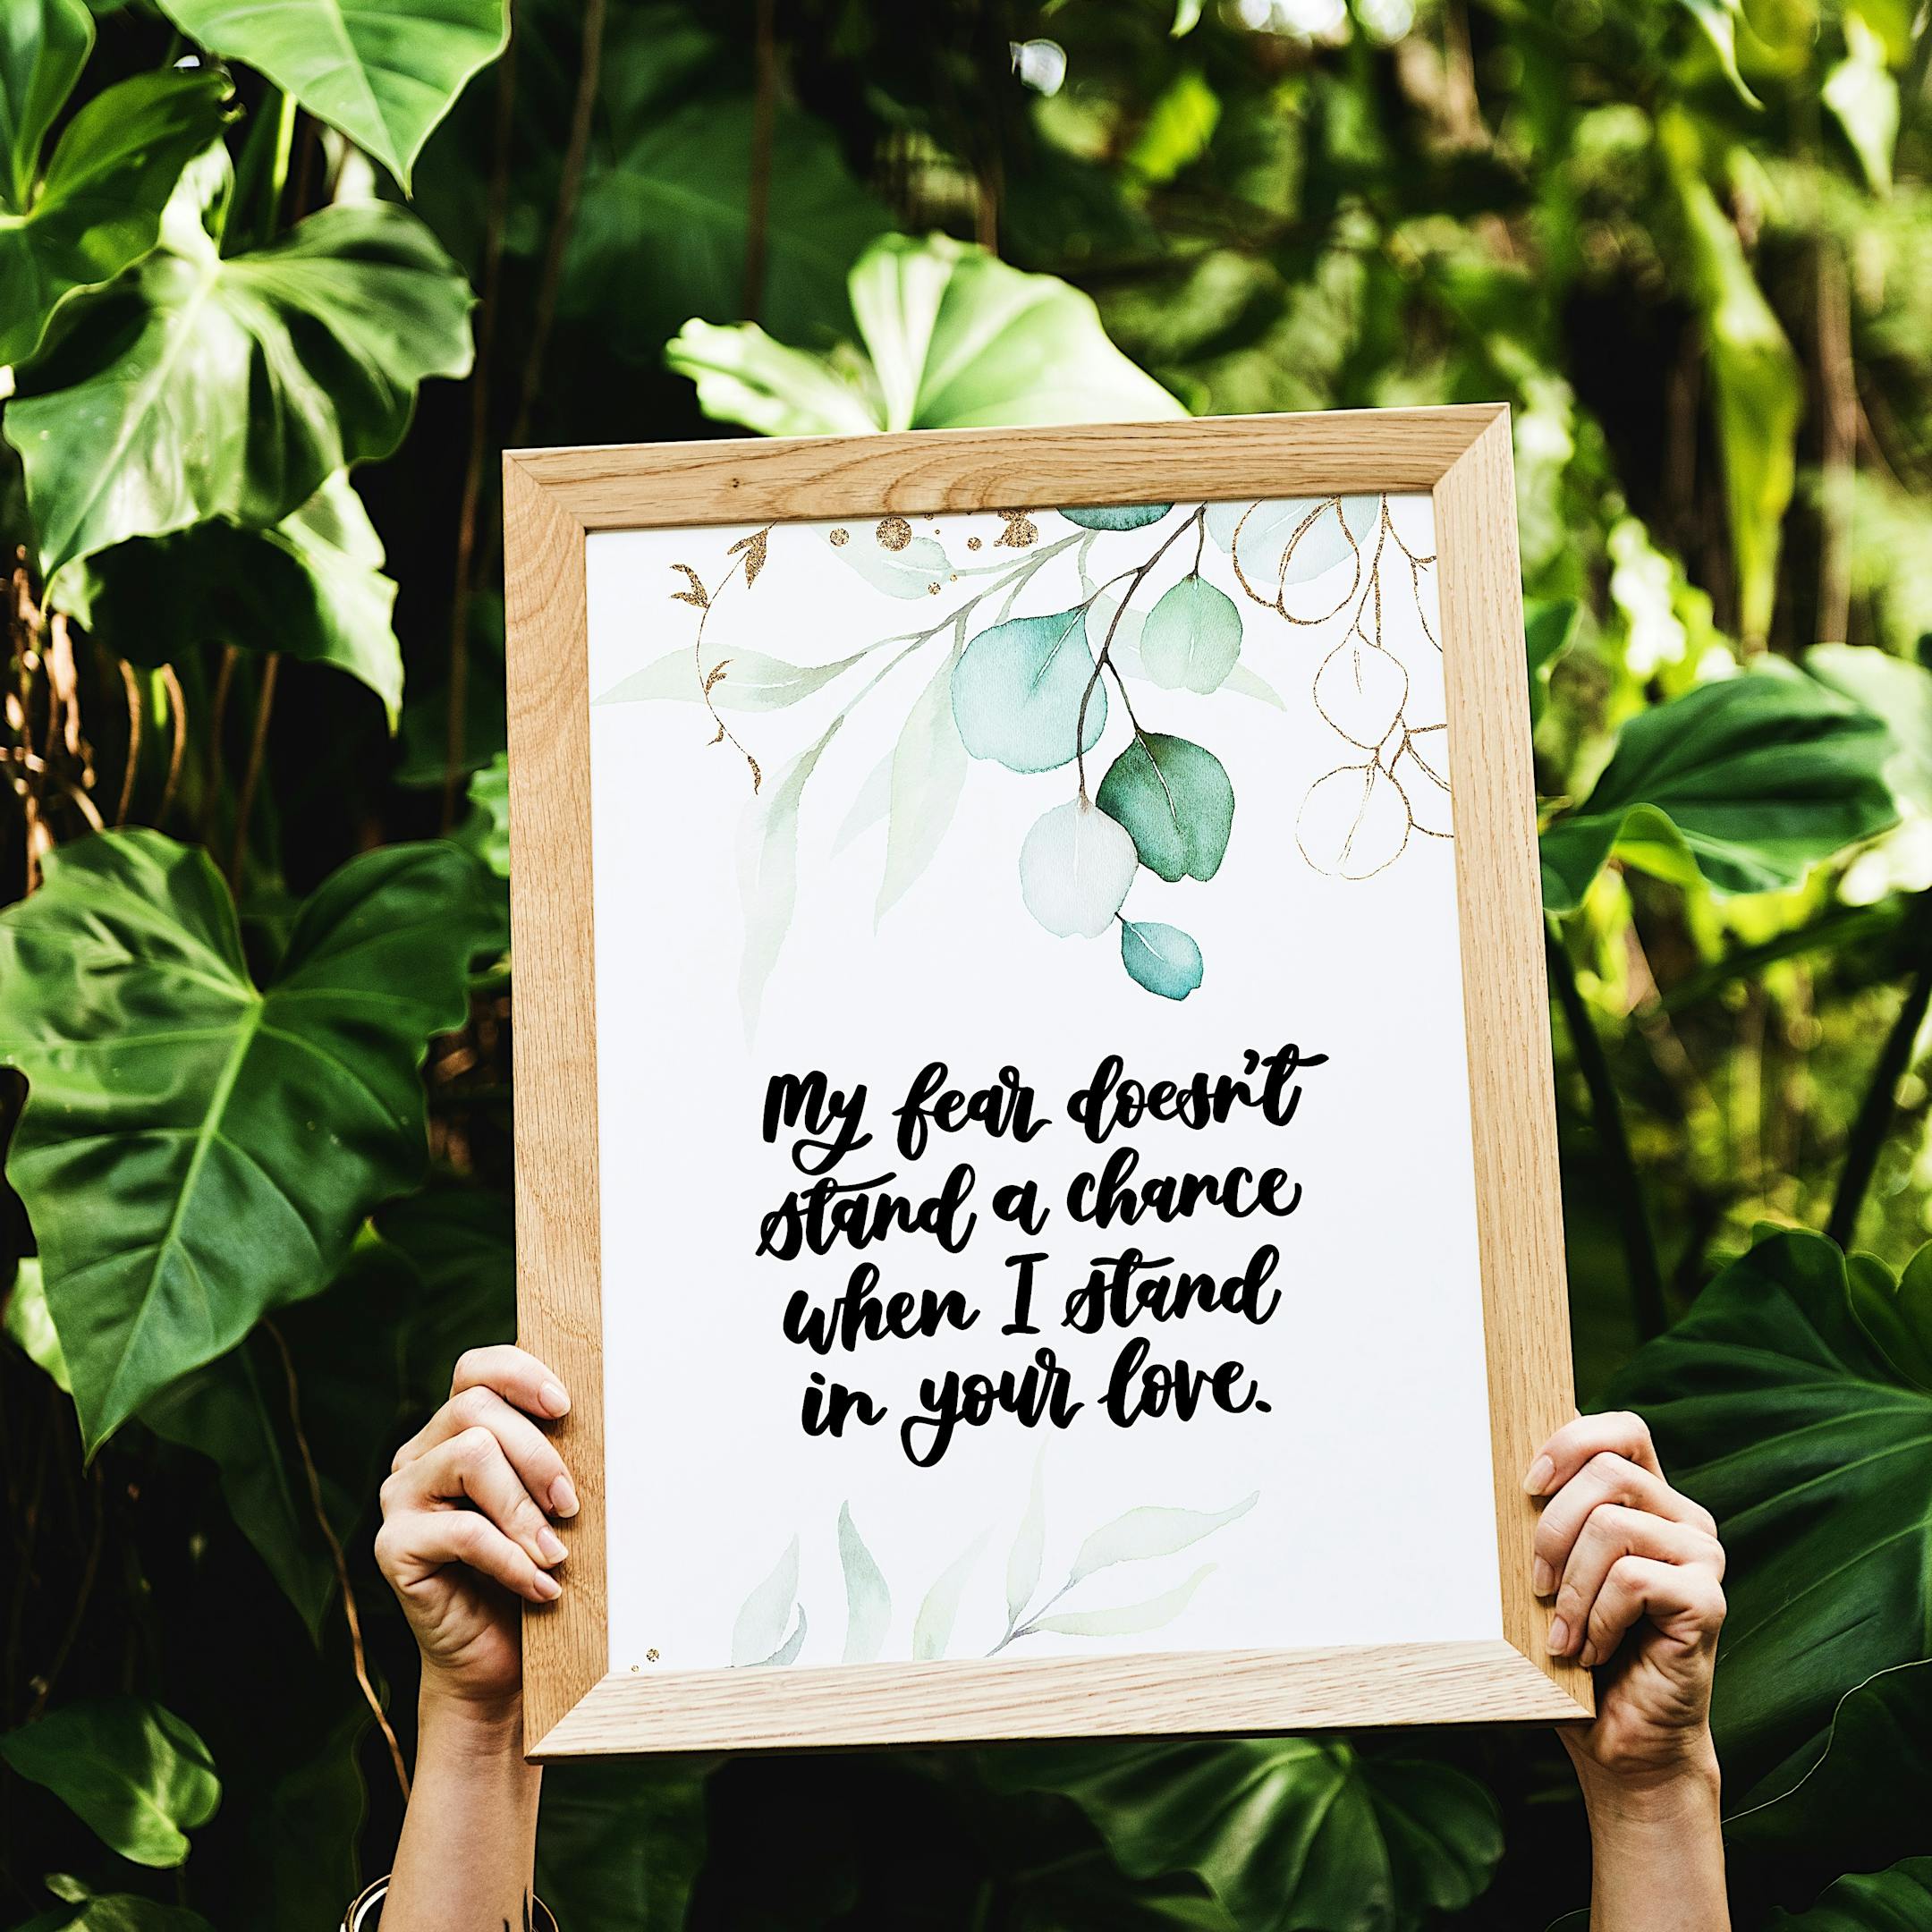 My fear doesn't
stand a chance
when I stand
in your love.